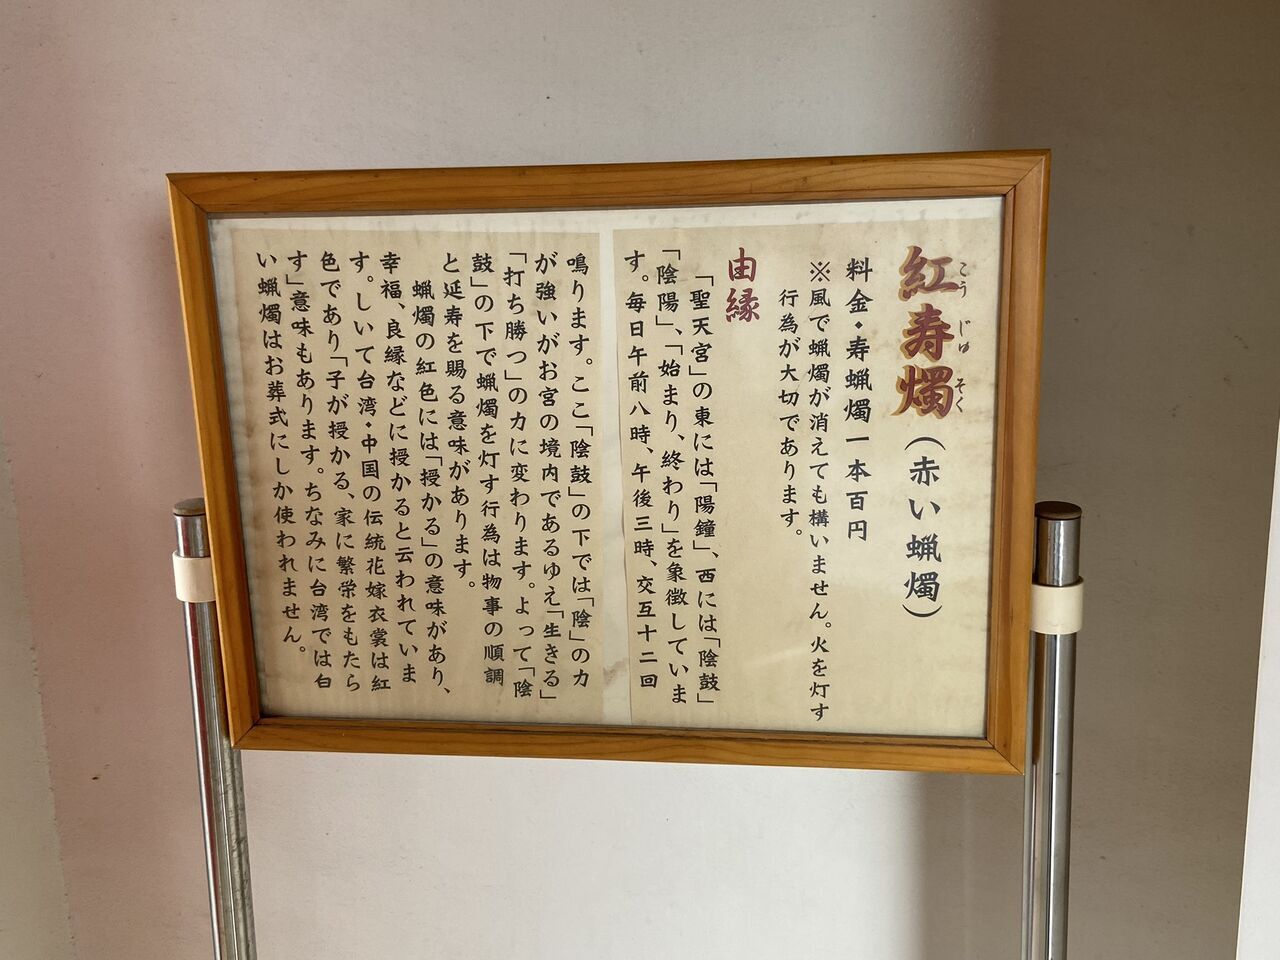 紅寿燭(赤い蝋燭)
こうじゅそく
料金・寿蝋燭一本百円
※風で蝋燭が消えても構いません。火を灯す
行為が大切であります。
由縁
「聖天宮」の東には「陽鐘」、西には「陰鼓」
「陰陽」、「始まり、終わり」を象徴していま
す。毎日午前八時、午後三時、交互十二回
鳴ります。ここ「陰鼓」の下では「陰」の力
が強いがお宮の境内であるゆえ「生きる」
「打ち勝つ」の力に変わります。よって「陰
鼓」の下で蝋燭を灯す行為は物事の順調
と延寿を賜る意味があります。
蝋燭の紅色には「授かる」の意味があり、
幸福、良縁などに授かると云われていま
す。しいて台湾・中国の伝統花嫁衣裳は紅
色であり「子が授かる、家に繁栄をもたら
す」意味もあります。ちなみに台湾では白
い蝋燭はお葬式にしか使われません。